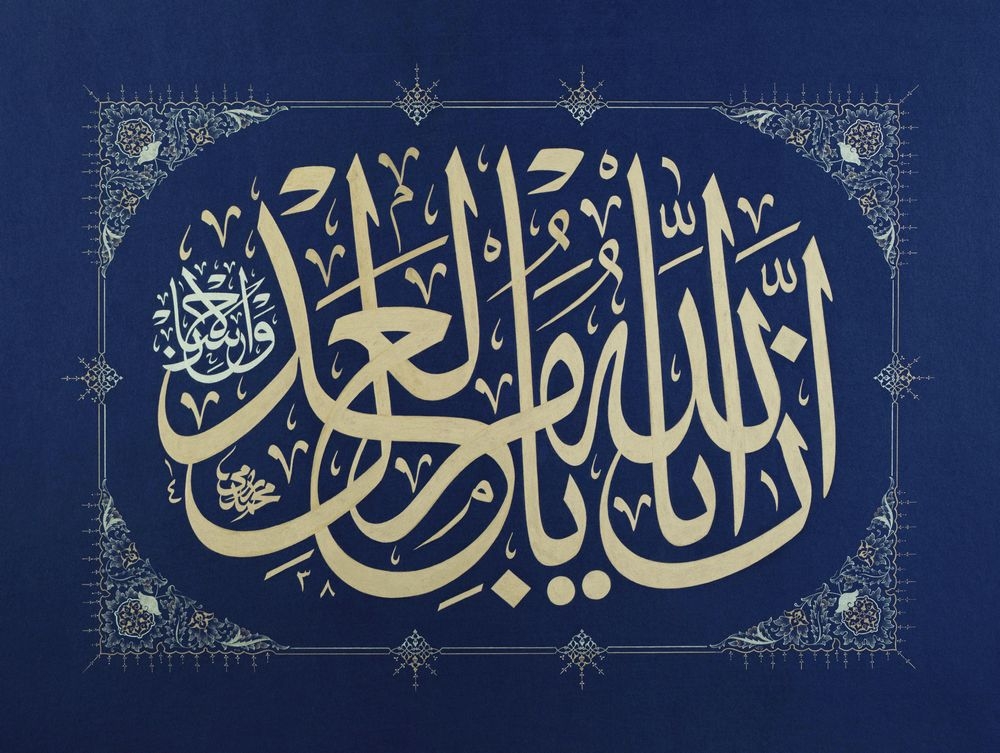 إِنَّ اللَّهَ يَأْمُرُ بِالْعَدْلِ
وَالْإِحْسَانِ